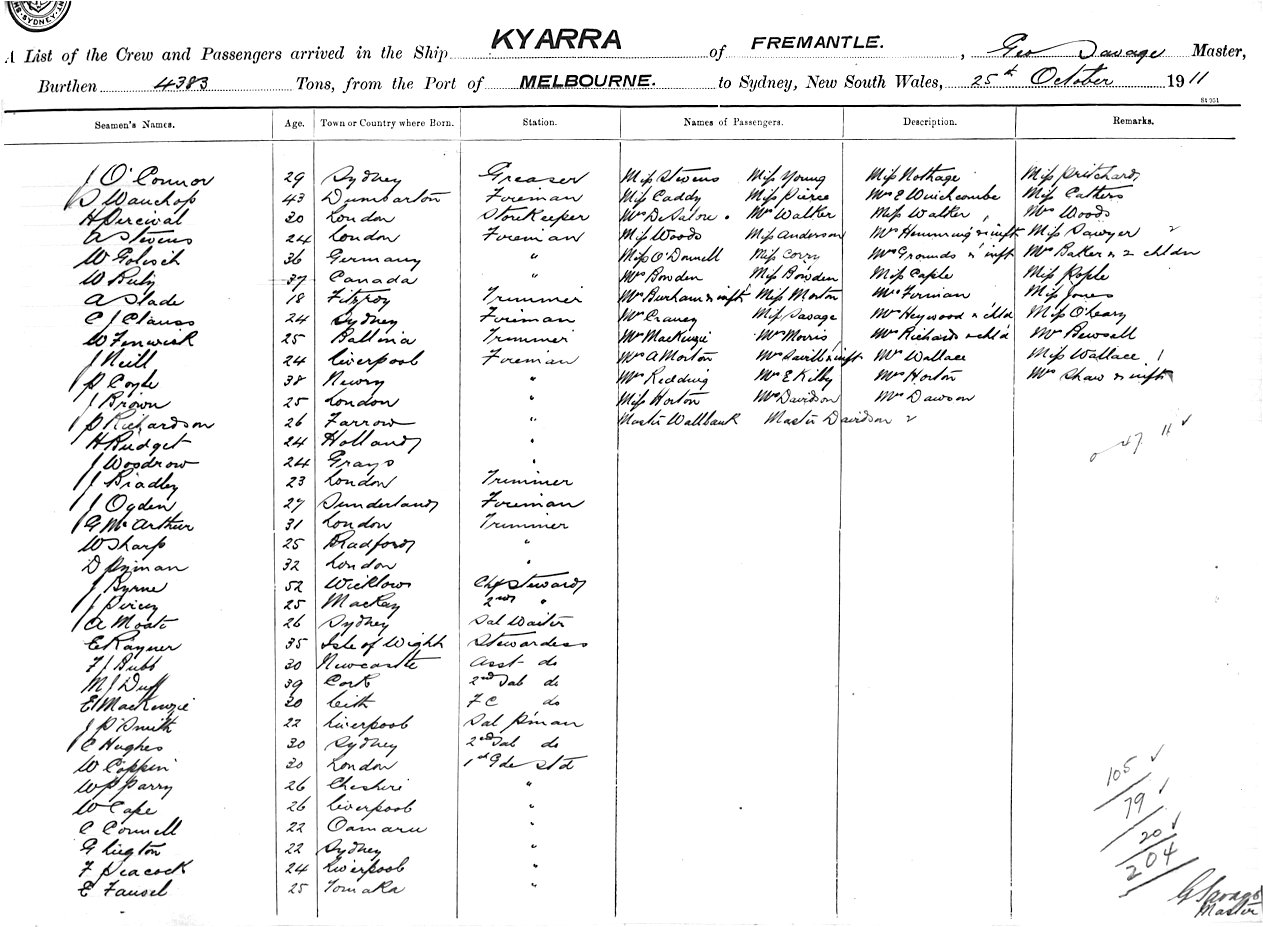 SYDNEY
A List of the Crew and Passengers arrived in the Ship KYARRA of FREMANTLE. , Geo Savage Master,
Burthen 4383 Tons, from the Port of MELBOURNE. to Sydney, New South Wales, 25th October 1911
Seamen's Names. Age. Town or Country where Born. Station. Names of Passengers. Description. Remarks.
J O'Connor 29 Sydney Greaser Miss Stevens Miss Young Miss Nothage Miss Pritchard
D Wauchop 43 Dumbarton Foreman Miss Caddy Miss Pierce Mrs E Winchcombe Miss Cathers
H Percival 30 London Storekeeper Mrs Walker Miss Walker Mrs Woods
A Stevens 24 London Foreman Miss Woods Miss Anderson Mrs Hemming & inft Miss Sawyer 2
W Golisch 36 Germany " Miss O'Donnell Miss Corry Mrs Grounds & inft Mrs Baker & 2 chldn
W Ruby 37 Canada " Mrs Bowden Miss Bowden Miss Caple Miss Kople
A Slade 18 Fitzroy Trimmer Mrs Burham & inft Miss Morton Mrs Firman Miss Jones
C J Clauss 24 Sydney Foreman Mrs Craney Miss Savage Mrs Heywood & chld Miss O'Leary
W Fenwick 25 Ballina Trimmer Mrs MacKenzie Mrs Morris Mrs Richards & chld Mrs Bewsell
J Neill 24 Liverpool Foreman Mrs A Morton Mrs Savill & inft Mrs Wallace Miss Wallace 1
P Coyle 38 Newry " Mrs Redding Mrs E Kilby Mrs Horton Mrs Shaw & inft
J Brown 25 London " Miss Horton Mrs Davidson Mrs Dawson
P Richardson 26 Farrow " Master Wallbank Master Davidson 2
H Budget 24 Holland "
47 11
J Woodrow 24 Grays "
J Bradley 23 London Trimmer
J Ogden 27 Sunderland Foreman
G McArthur 31 London Trimmer
W Sharp 25 Bradford "
D Pyman 32 London "
J Byrne 52 Wicklow Chf Steward
J Piricy 25 MacKay 2nd "
A Moate 26 Sydney Sal Waiter
E Rayner 35 Isle of Wight Stewardess
F J Bubb 30 Newcastle Asst do
M J Duff 39 Cork 2nd Sal do
E MacKenzie 30 Leith F C do
J P Smith 22 Liverpool Sal P'man
C Hughes 30 Sydney 2nd Sal do
W Coppin 30 London 1st Gde Std
W P Parry 26 Cheshire "
105
W Cape 26 Liverpool "
79
C Connell 22 Oamaru "
20
G Lington 22 Sydney "
204
F Peacock 24 Liverpool "
E Fausel 25 "
G Savage
Master